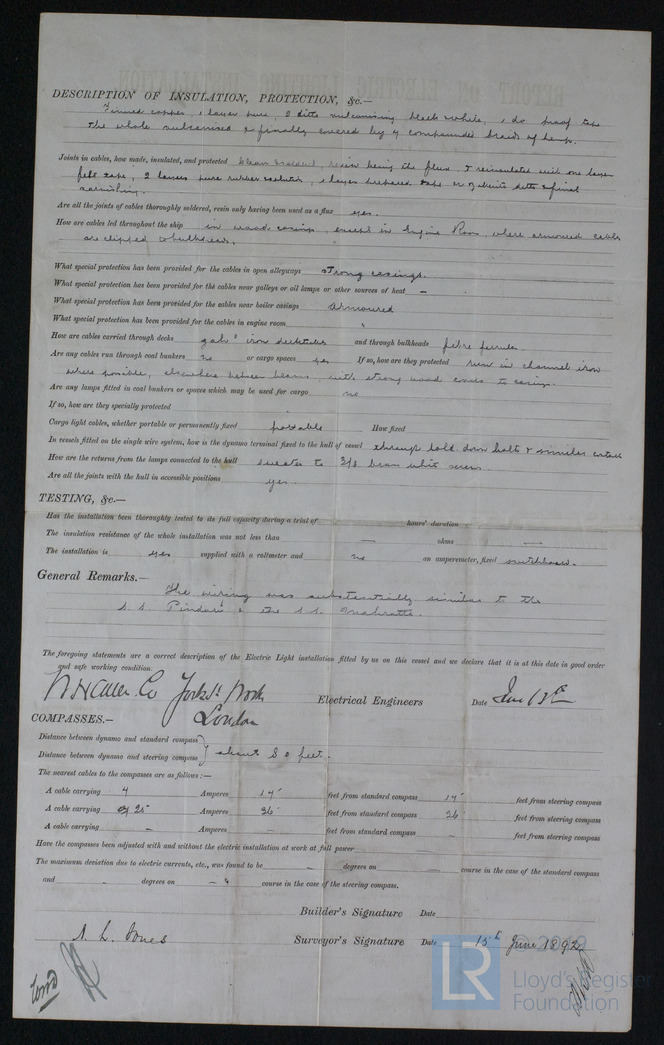 DESCRIPTION OF INSULATION, PROTECTION, &c.—
Tinned copper, 1 layer pure, 2 ditto vulcanising black & white, 1 do proof tape
The whole vulcanised & finally covered by compounded braid of hemp.
Joints in cables, how made, insulated, and protected resin being the flux, & reinsulated with one layer
felt tape, 2 layers pure rubber solution, 1 layer prepared tape or ditto & final
varnishing.
Are all the joints of cables thoroughly soldered, resin only having been used as a flux yes.
How are cables led throughout the ship in wood casings, except in Engine Room, where armoured cables
are clipped to bulkheads.
What special protection has been provided for the cables in open alleyways strong casings.
What special protection has been provided for the cables near galleys or oil lamps or other sources of heat —
What special protection has been provided for the cables near boiler casings armoured
What special protection has been provided for the cables in engine room "
How are cables carried through decks galvd iron decktubes and through bulkheads fibre ferrules.
Are any cables run through coal bunkers no or cargo spaces yes If so, how are they protected run in channel iron
where possible, elsewhere between beams, with strong wood covers to casing.
Are any lamps fitted in coal bunkers or spaces which may be used for cargo no
If so, how are they specially protected
Cargo light cables, whether portable or permanently fixed portable How fixed
In vessels fitted on the single wire system, how is the dynamo terminal fixed to the hull of vessel through hold down bolts & similar contacts
How are the returns from the lamps connected to the hull sweated to 3/8 screws
Are all the joints with the hull in accessible positions yes.
TESTING, &c.—
Has the installation been thoroughly tested to its full capacity during a trial of hours' duration
The insulation resistance of the whole installation was not less than — ohms —
The installation is yes supplied with a voltmeter and no an amperemeter, fixed switchboard.
General Remarks.—
The wiring was substantially similar to the
S.S. Pindari & the S.S. Mahratta.
The foregoing statements are a correct description of the Electric Light installation fitted by us on this vessel and we declare that it is at this date in good order
and safe working condition.
W H Allen. Co York St Works Electrical Engineers Date June 13th
London
COMPASSES.—
Distance between dynamo and standard compass
Distance between dynamo and steering compass } about 80 feet.
The nearest cables to the compasses are as follows:—
A cable carrying 4 Amperes 14' feet from standard compass 14' feet from steering compass
A cable carrying 25 Amperes 26' feet from standard compass 26' feet from steering compass
A cable carrying — Amperes — feet from standard compass — feet from steering compass
Have the compasses been adjusted with and without the electric installation at work at full power
The maximum deviation due to electric currents, etc., was found to be — degrees on — course in the case of the standard compass
and — degrees on — course in the case of the steering compass.
Builder's Signature Date
S. L. Jones Surveyor's Signature Date 15th June 1892
LR © 2019
Lloyd's Register
Foundation